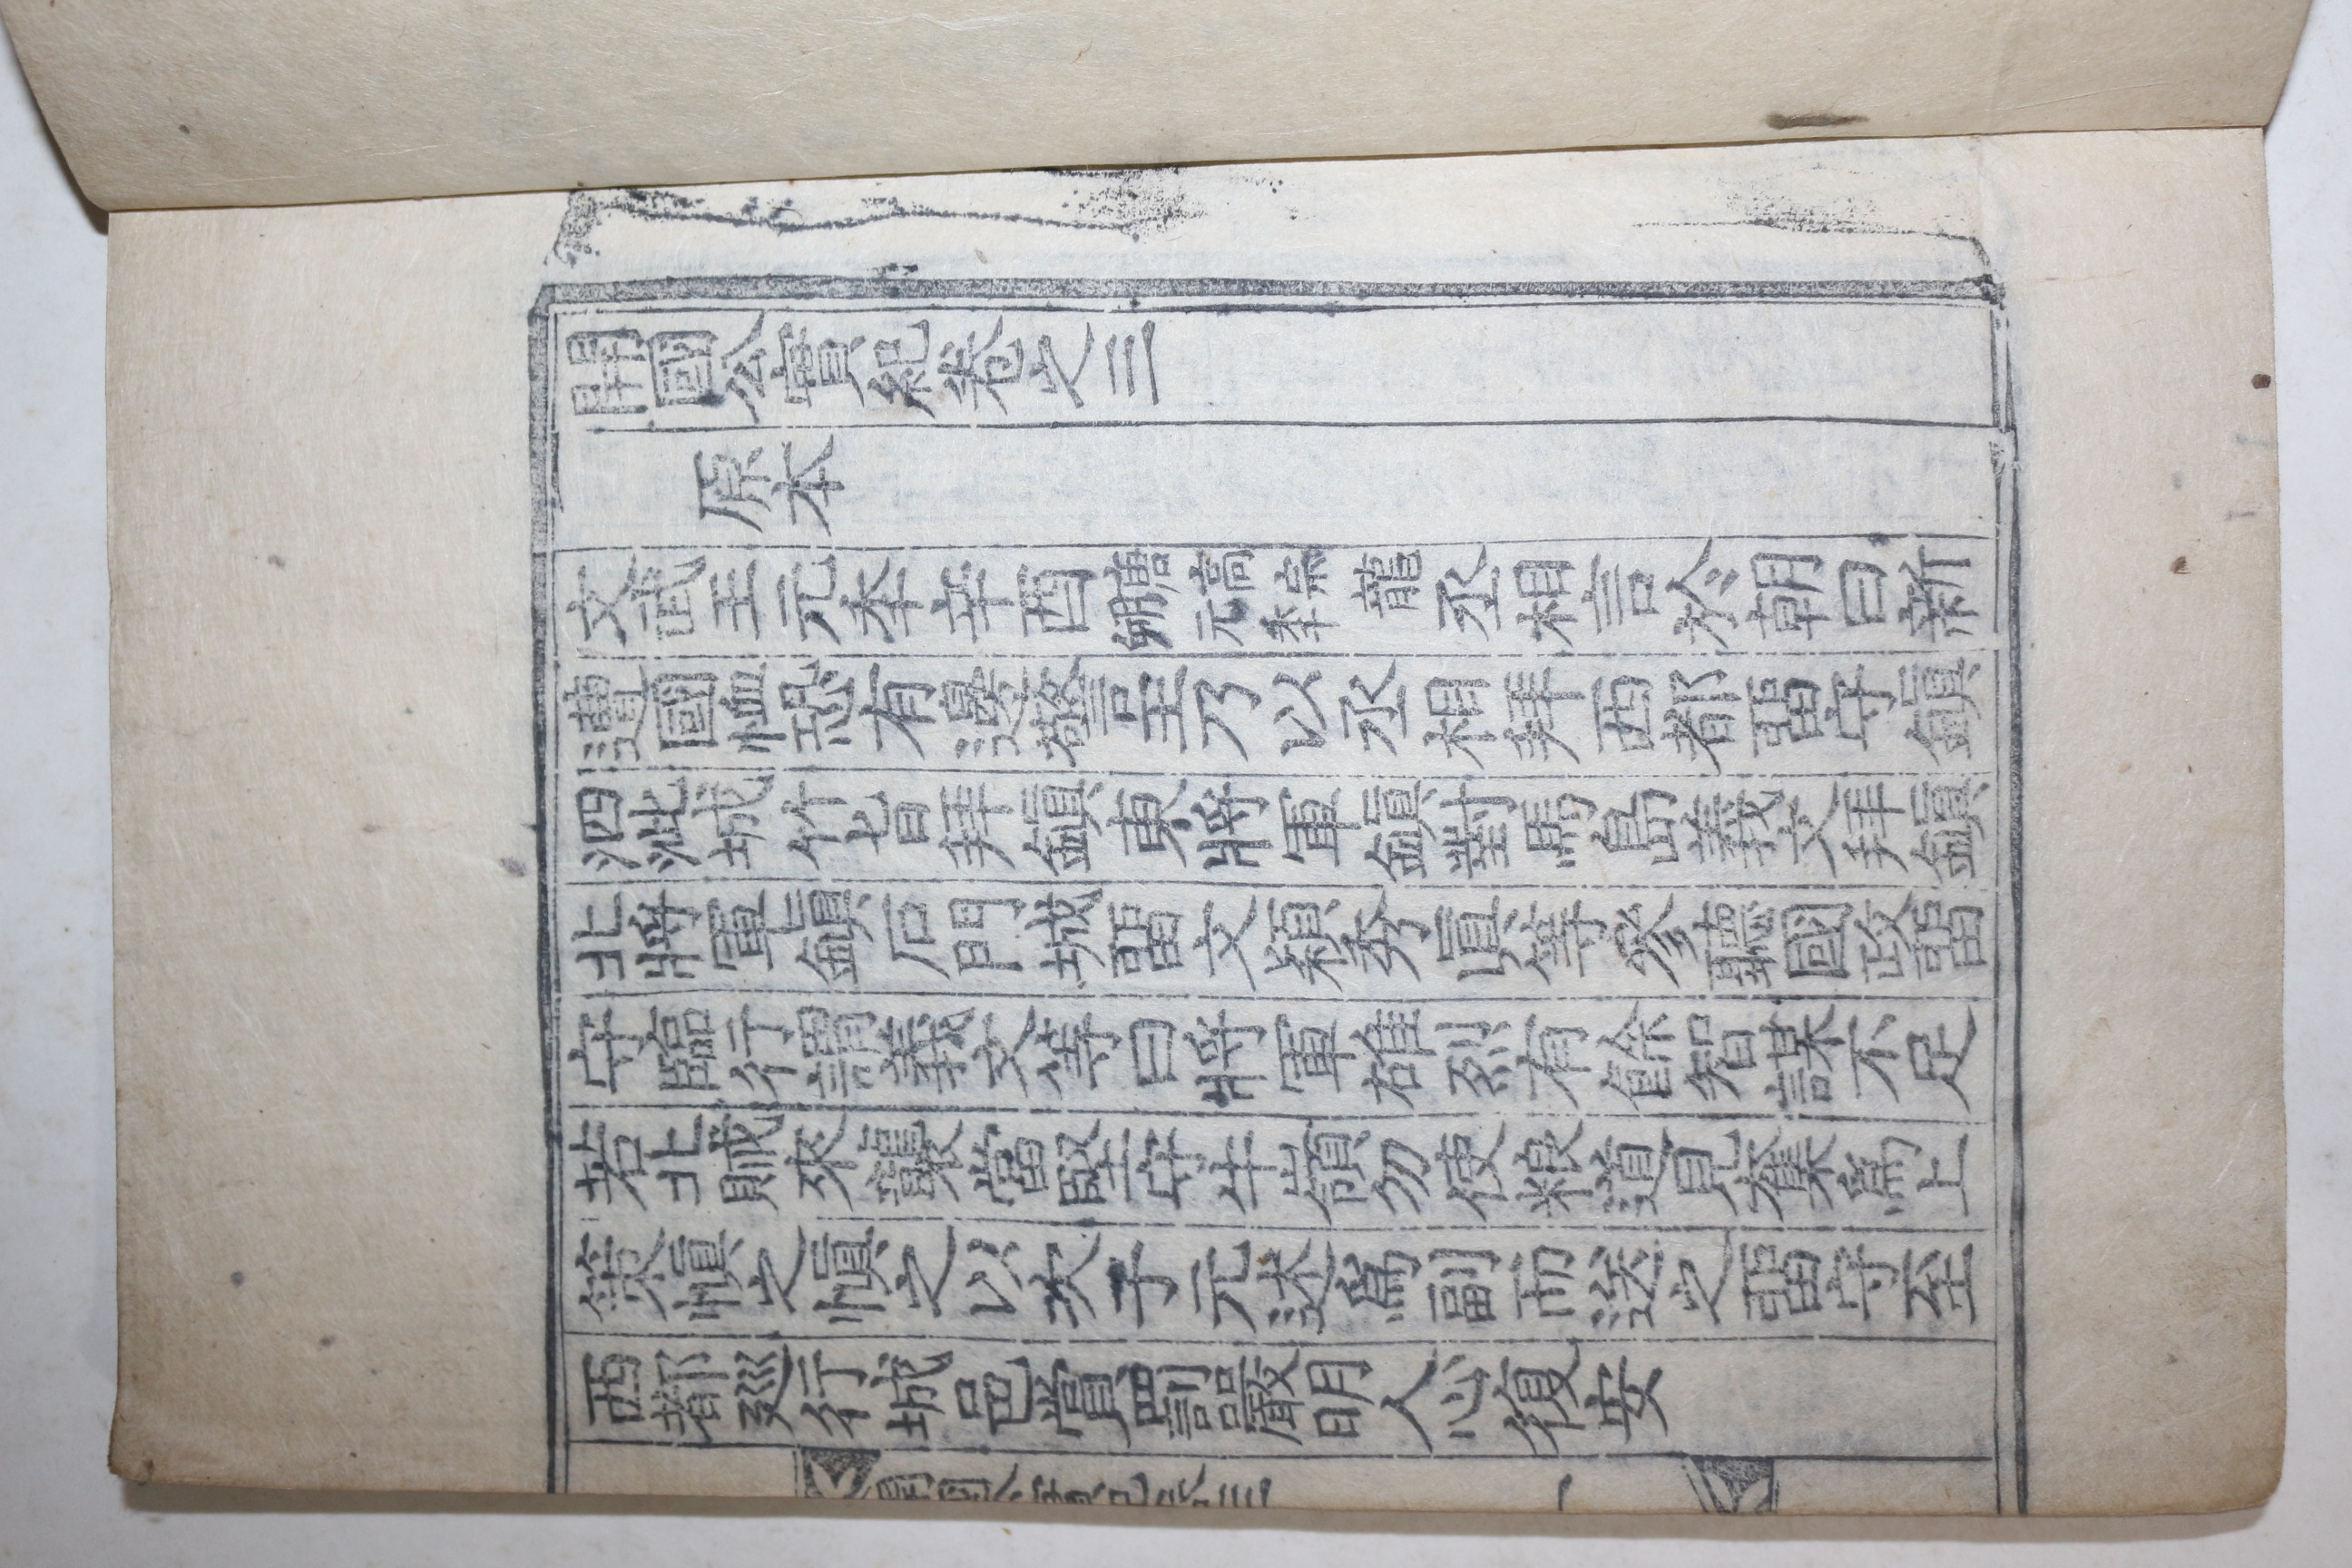 開國公實紀卷之三
原本
文武王元秊辛酉唐高宗龍朔元秊丞相言於朝曰新
遭國恤恐有邊警王乃以丞相拜西都畱守鎭
泗沘城竹旨拜鎭東將軍鎭對馬島義文拜鎭
北將軍鎭石門城畱文穎秀眞等參聽國政畱
守臨行謂義文等曰將軍雄烈有餘智謀不足
若北賊來襲當堅守牛嶺勿使粮道見奪爲上
策愼之愼之以次子元述爲副而送之畱守至
西都廵行城邑賞罰嚴明人心復安